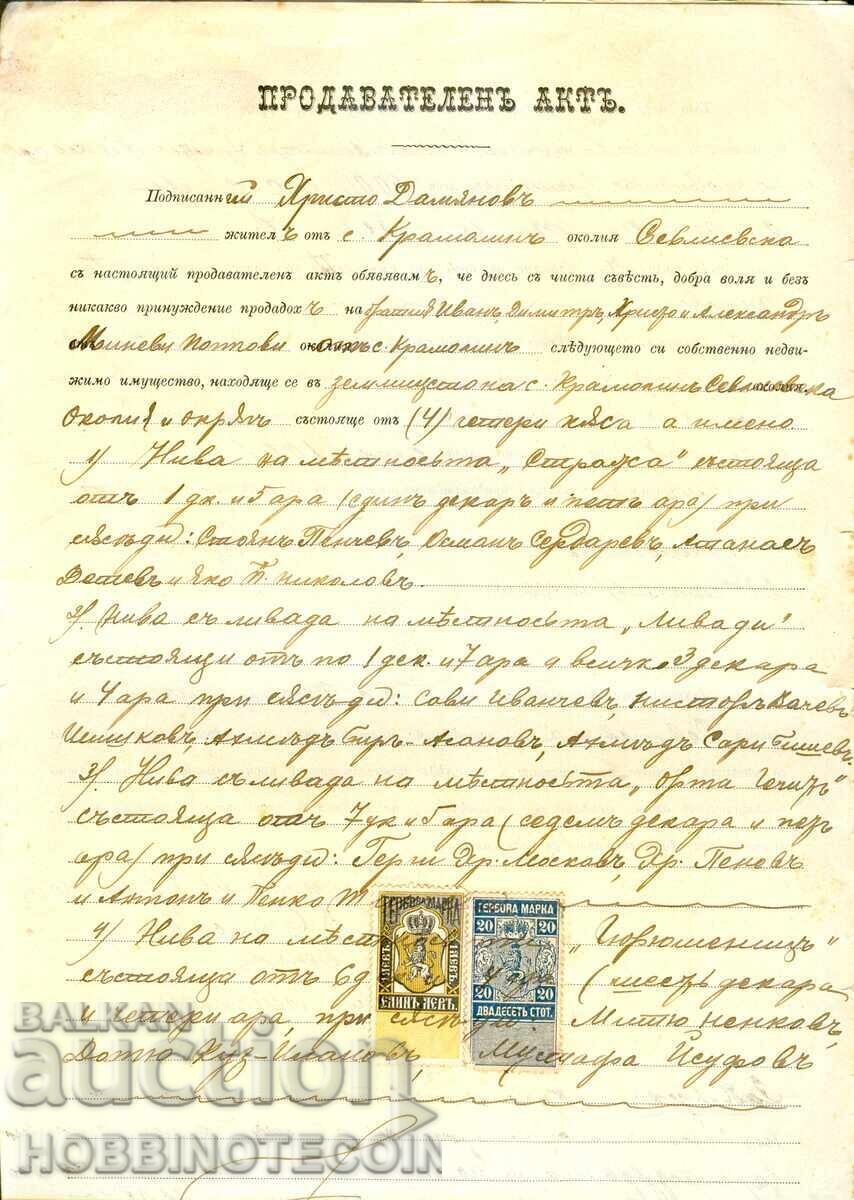 ПРОДАВАТЕЛЕНЪ АКТЪ.
Подписанний Христо Дамяновъ
жителъ отъ с. Крамолинъ околия Севлиевска
съ настоящий продавателенъ актъ обявявамъ, че днесь съ чиста съвѣсть, добра воля и безъ
никакво принуждение продадохъ на братия Иванъ, Димитръ, Христо и Александръ
Миневи Поппови отъ с. Крамолинъ слѣдующето си собственно недви-
жимо имущество, находяще се въ землището на с. Крамолинъ Севлиевска
Околия и окрѫгъ състояще отъ (4) четери кѫса а имено
1) Нива на мѣстностьта „Стража" състояща
отъ 1 дк. и 5 ара (единъ декаръ и петь ара) при
сѫсѣди: Стоянъ Пенчевъ, Османъ Сердаревъ, Атанасъ
и Яко П. Николовъ.
2) Нива съ ливада на мѣстностьта „Ливади"
състоящи отъ по 1 дек. и 7 ара а всичко 3 декара
и 4 ара при сѫсѣди: Иванчевъ, Нисторъ Качевъ
Ахмедъ Асановъ, Ахмедъ Сари
3) Нива съ ливада на мѣстностьта „Орта
състояща отъ 7 дк и 5 ара (седемъ декара и петь
ара) при сѫсѣди: Др. Московъ, Др. Пеновъ
и Антонъ и Пенко
4) Нива на
състояща отъ 6 (шесть декара
и четери ара, при сѫсѣди: Митю Ненковъ,
Мустафа Исуфовъ
ГЕРБОВА МАРКА
1 ЛЕВЪ. 1 ЛЕВЪ.
ЕДИНЪ ЛЕВЪ.
ГЕРБОВА МАРКА
20 20
20 20
ДВАДЕСЕТЬ СТОТ.
BALKAN
auction
HOBBINOTECOIN